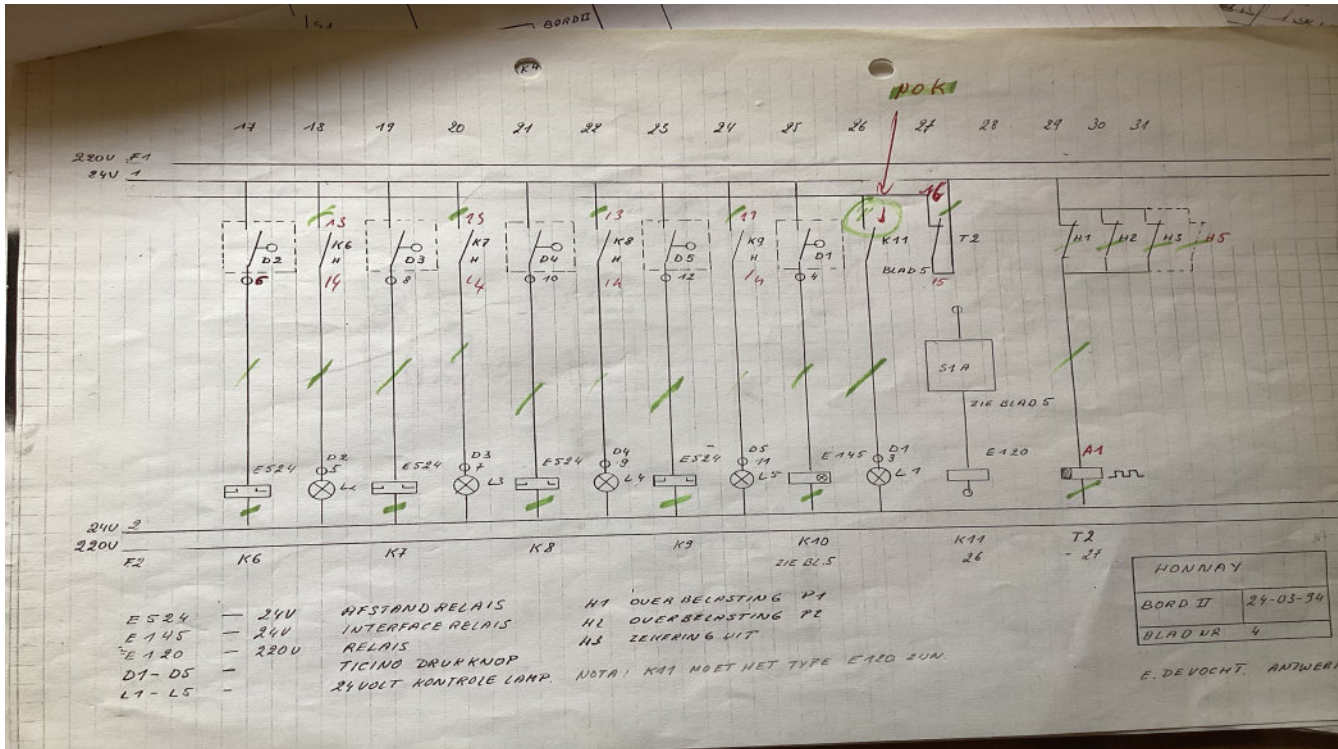 BORD II
K4
NOK
17 18 19 20 21 22 23 24 25 26 27 28 29 30 31
220V F1
24V 1
13 15 13 17 16
K6 K7 K8 K9 K11 T2 H1 H2 H3 H5
H H H H
D2 D3 D4 D5 D1
BLAD 5
6 14 8 14 10 14 12 14 4 15
S1A
ZIE BLAD 5
E524 D2 5 L2
E524 D3 7 L3
E524 D4 9 L4
E524 D5 11 L5
E145 D1 3 L1
E120
A1
24V 2
220V F2
K6 K7 K8 K9 K10 K11 T2
ZIE BL.5 26 - 27
E524 — 24V AFSTANDRELAIS
E145 — 24V INTERFACE RELAIS
E120 — 220V RELAIS
D1-D5 - TICINO DRUKKNOP
L1-L5 - 24VOLT KONTROLE LAMP.
H1 OVERBELASTING P1
H2 OVERBELASTING P2
H3 ZEKERING UIT
NOTA: K11 MOET HET TYPE E120 ZIJN.
HONNAY
BORD II 24-03-94
BLAD NR 4
E. DEVOCHT. ANTWER